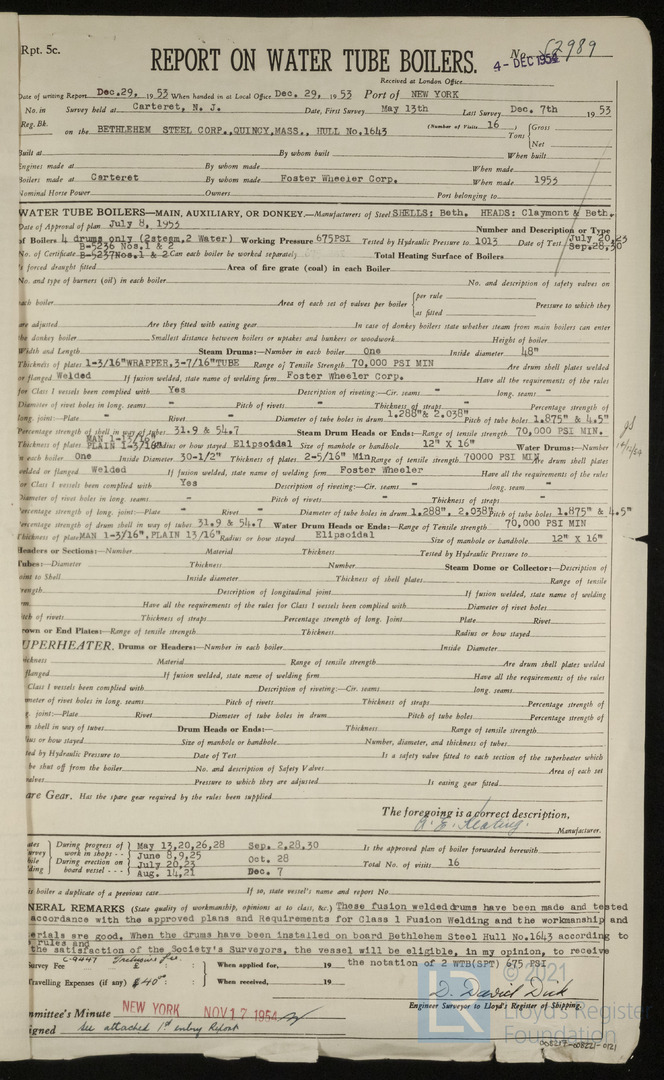 Rpt. 5c.
REPORT ON WATER TUBE BOILERS.
No. 62989
4 - DEC 1954
Received at London Office
Date of writing Report Dec. 29, 1953 When handed in at Local Office Dec. 29, 1953 Port of NEW YORK
No. in Survey held at Carteret, N. J. Date, First Survey May 13th Last Survey Dec. 7th 1953
Reg. Bk. (Number of Visits 16)
on the BETHLEHEM STEEL CORP., QUINCY, MASS., HULL No. 1643 Tons { Gross Net
Built at By whom built When built
Engines made at By whom made When made
Boilers made at Carteret By whom made Foster Wheeler Corp. When made 1953
Nominal Horse Power Owners Port belonging to
WATER TUBE BOILERS—MAIN, AUXILIARY, OR DONKEY.—Manufacturers of Steel SHELLS: Beth. HEADS: Claymont & Beth.
Date of Approval of plan July 8, 1953 Number and Description or Type
of Boilers 4 drums only (2steam,2 Water) Working Pressure 675PSI Tested by Hydraulic Pressure to 1013 Date of Test July 20,23 Sep.28,30
No. of Certificate B-5236 Nos.1 & 2 B-5237Nos.1 & 2 Can each boiler be worked separately Total Heating Surface of Boilers
Is forced draught fitted Area of fire grate (coal) in each Boiler
No. and type of burners (oil) in each boiler No. and description of safety valves on
each boiler Area of each set of valves per boiler { per rule as fitted Pressure to which they
are adjusted Are they fitted with easing gear In case of donkey boilers state whether steam from main boilers can enter
the donkey boiler Smallest distance between boilers or uptakes and bunkers or woodwork Height of boiler
Width and Length Steam Drums:—Number in each boiler One Inside diameter 48"
Thickness of plates 1-3/16"WRAPPER,3-7/16"TUBE Range of Tensile Strength 70,000 PSI MIN Are drum shell plates welded
or flanged Welded If fusion welded, state name of welding firm Foster Wheeler Corp. Have all the requirements of the rules
for Class I vessels been complied with Yes Description of riveting:—Cir. seams " long. seams "
Diameter of rivet holes in long. seams " Pitch of rivets " Thickness of straps " Percentage strength of
long. joint:—Plate " Rivet Diameter of tube holes in drum 1.288" & 2.038" Pitch of tube holes 1.875" & 4.5"
Percentage strength of shell in way of tubes 31.9 & 54.7 Steam Drum Heads or Ends:—Range of tensile strength 70,000 PSI MIN.
Thickness of plates MAN 1-13/16" PLAIN 1-3/16" Radius or how stayed Elipsoidal Size of manhole or handhole 12" X 16" Water Drums:—Number
in each boiler One Inside Diameter 30-1/2" Thickness of plates 2-5/16" Min Range of tensile strength 70000 PSI MIN. Are drum shell plates
welded or flanged Welded If fusion welded, state name of welding firm Foster Wheeler Have all the requirements of the rules
for Class I vessels been complied with Yes Description of riveting:—Cir. seams " long. seam "
Diameter of rivet holes in long. seams " Pitch of rivets " Thickness of straps "
Percentage strength of long. joint:—Plate " Rivet " Diameter of tube holes in drum 1.288", 2.038" Pitch of tube holes 1.875" & 4.5"
Percentage strength of drum shell in way of tubes 31.9 & 54.7 Water Drum Heads or Ends:—Range of Tensile Strength 70,000 PSI MIN
Thickness of plates MAN 1-3/16", PLAIN 13/16" Radius or how stayed Elipsoidal Size of manhole or handhole 12" X 16"
Headers or Sections:—Number Material Thickness Tested by Hydraulic Pressure to
Tubes:—Diameter Thickness Number Steam Dome or Collector:—Description of
Joint to Shell Inside diameter Thickness of shell plates Range of tensile
strength Description of longitudinal joint If fusion welded, state name of welding
firm Have all the requirements of the rules for Class I vessels been complied with Diameter of rivet holes
Pitch of rivets Thickness of straps Percentage strength of long. Joint Plate Rivet
Crown or End Plates:—Range of tensile strength Thickness Radius or how stayed
SUPERHEATER. Drums or Headers:—Number in each boiler Inside Diameter
Thickness Material Range of tensile strength Are drum shell plates welded
or flanged If fusion welded, state name of welding firm Have all the requirements of the rules
for Class I vessels been complied with Description of riveting:—Cir. seams long. seams
Diameter of rivet holes in long. seams Pitch of rivets Thickness of straps Percentage strength of
long. joint:—Plate Rivet Diameter of tube holes in drum Pitch of tube holes Percentage strength of
drum shell in way of tubes Drum Heads or Ends:— Thickness Range of tensile strength
Radius or how stayed Size of manhole or handhole Number, diameter, and thickness of tubes
Tested by Hydraulic Pressure to Date of Test Is a safety valve fitted to each section of the superheater which
can be shut off from the boiler No. and description of Safety Valves Area of each set
of valves Pressure to which they are adjusted Is easing gear fitted
Spare Gear. Has the spare gear required by the rules been supplied
The foregoing is a correct description,
Manufacturer.
Dates of Survey while building { During progress of work in shops -- May 13,20,26,28 Sep. 2,28,30 Is the approved plan of boiler forwarded herewith
June 8,9,25
{ During erection on board vessel --- July 20,23 Oct. 28 Total No. of visits 16
Aug. 14,21 Dec. 7
Is boiler a duplicate of a previous case If so, state vessel's name and report No.
GENERAL REMARKS (State quality of workmanship, opinions as to class, &c.) These fusion welded drums have been made and tested
in accordance with the approved plans and Requirements for Class 1 Fusion Welding and the workmanship and
materials are good. When the drums have been installed on board Bethlehem Steel Hull No.1643 according to
rules and
the satisfaction of the Society's Surveyors, the vessel will be eligible, in my opinion, to receive
the notation of 2 WTB(SPT) 675 PSI
C-9447
Survey Fee £ : : When applied for, 19
Travelling Expenses (if any) $40.00 : When received, 19
D. David Dick
Engineer Surveyor to Lloyd's Register of Shipping.
Committee's Minute NEW YORK NOV 17 1954
Assigned See attached 1st entry Report
© 2021
LR
Lloyd's Register
Foundation
008217-008221-0121